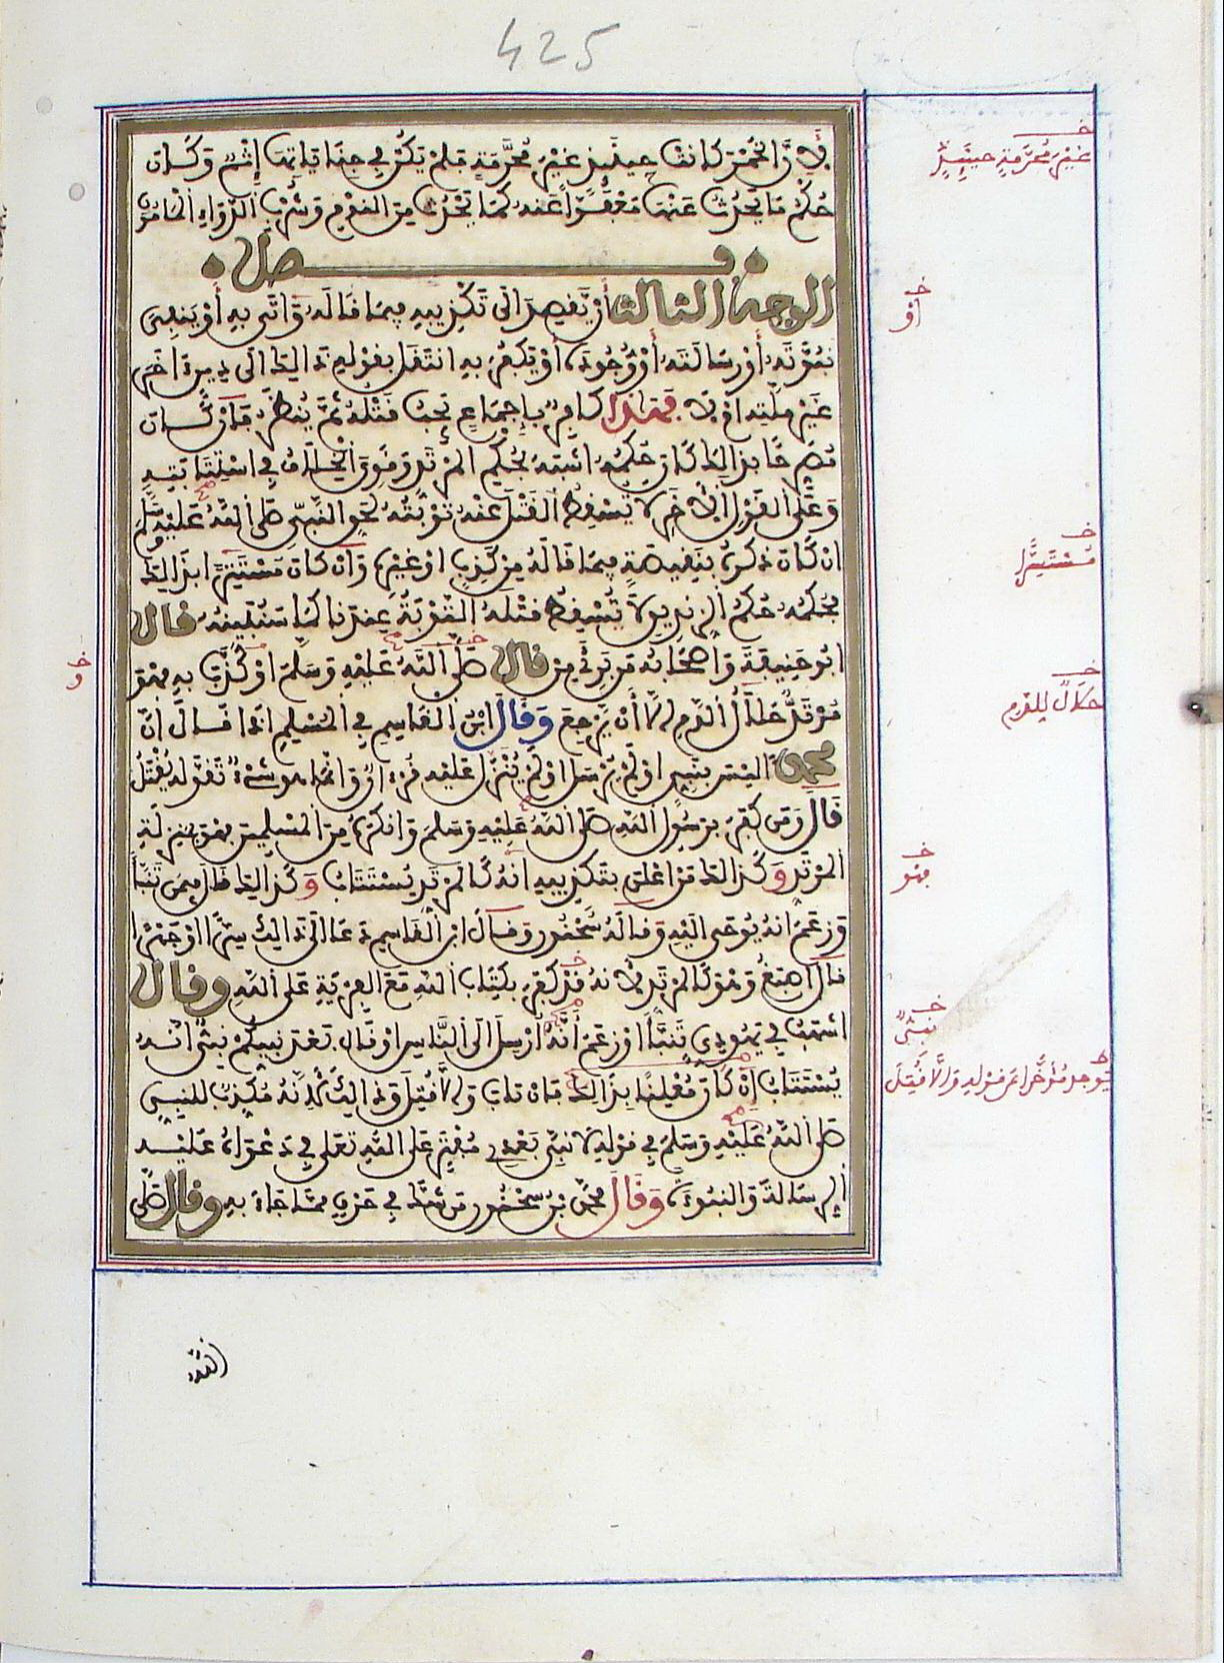 425
لِأَنَّ الْخَمْرَ كَانَتْ حِينَئِذٍ غَيْرَ مُحَرَّمَةٍ فَلَمْ يَكُنْ فِي جِنَايَاتِهَا إِثْمٌ وَكَانَ
حُكْمُ مَا يَحْدُثُ عَنْهَا مَعْفُوًّا عَنْهُ كَمَا يَحْدُثُ مِنَ النَّوْمِ وَشُرْبِ الدَّوَاءِ الْمَأْمُونِ
فصل
الوجه الثالث أَنْ يَقْصِدَ إِلَى تَكْذِيبِهِ فِيمَا قَالَهُ وَأَتَى بِهِ أَوْ يَنْفِيَ
نُبُوَّتَهُ أَوْ رِسَالَتَهُ أَوْ وُجُودَهُ أَوْ يَكْفُرَ بِهِ انْتَقَلَ بِقَوْلِهِ ذَالِكَ إِلَى دِينٍ آخَرَ
غَيْرِ مِلَّتِهِ أَوْ لَا فَهَذَا كَافِرٌ بِإِجْمَاعٍ يَجِبُ قَتْلُهُ ثُمَّ يُنْظَرُ فَإِنْ كَانَ
مُصَرِّحًا بِذَالِكَ كَانَ حُكْمُهُ أَشْبَهَ بِحُكْمِ الْمُرْتَدِّ وَقَوِيَ الْخِلَافُ فِي اسْتِتَابَتِهِ
وَعَلَى الْقَوْلِ الْآخَرِ لَا تُسْقِطُ الْقَتْلَ عَنْهُ تَوْبَتُهُ لِحَقِّ النَّبِيِّ صَلَّى اللَّهُ عَلَيْهِ وَسَلَّمَ
إِنْ كَانَ ذَكَرَهُ بِنَقِيصَةٍ فِيمَا قَالَهُ مِنْ كَذِبٍ أَوْ غَيْرِهِ وَإِنْ كَانَ مُتَسَتِّرًا بِذَالِكَ
فَحُكْمُهُ حُكْمُ الزِّنْدِيقِ لَا تُسْقِطُ قَتْلَهُ التَّوْبَةُ عِنْدَنَا كَمَا سَنُبَيِّنُهُ قال
أَبُو حَنِيفَةَ وَأَصْحَابُهُ مَنْ بَرِئَ مِنْ قال صَلَّى اللَّهُ عَلَيْهِ وَسَلَّمَ أَوْ كَذَّبَ بِهِ فَهُوَ
مُرْتَدٌّ حَلَالُ الدَّمِ إِلَّا أَنْ يَرْجِعَ وَقَالَ ابْنُ الْقَاسِمِ فِي الْمُسْلِمِ إِذَا قَالَ إِنَّ
محمدا لَيْسَ بِنَبِيٍّ أَوْ لَمْ يُرْسَلْ أَوْ لَمْ يُنْزَلْ عَلَيْهِ قُرْءَانٌ وَإِنَّمَا هُوَ شَيْءٌ تَقَوَّلَهُ يُقْتَلُ
قَالَ وَمَنْ كَفَرَ بِرَسُولِ اللَّهِ صَلَّى اللَّهُ عَلَيْهِ وَسَلَّمَ وَأَنْكَرَهُ مِنَ الْمُسْلِمِينَ فَهُوَ بِمَنْزِلَةِ
الْمُرْتَدِّ وَكَذَالِكَ مَنْ أَعْلَنَ بِتَكْذِيبِهِ إِنَّهُ كَالْمُرْتَدِّ يُسْتَتَابُ وَكَذَالِكَ قَالَ فِيمَنْ تَنَبَّأَ
وَزَعَمَ أَنَّهُ يُوحَى إِلَيْهِ وَقَالَهُ سَحْنُونٌ وَقَالَ ابْنُ الْقَاسِمِ دَعَا إِلَى ذَالِكَ سِرًّا أَوْ جَهْرًا
قَالَ أَصْبَغُ وَهُوَ كَالْمُرْتَدِّ لِأَنَّهُ قَدْ كَفَرَ بِكِتَابِ اللَّهِ مَعَ الْفِرْيَةِ عَلَى اللَّهِ وقال
أَشْهَبُ فِي يَهُودِيٍّ تَنَبَّأَ أَوْ زَعَمَ أَنَّهُ أُرْسِلَ إِلَى النَّاسِ أَوْ قَالَ بَعْدَ نَبِيِّكُمْ نَبِيٌّ أَنَّهُ
يُسْتَتَابُ إِنْ كَانَ مُعْلِنًا بِذَالِكَ فَإِنْ تَابَ وَإِلَّا قُتِلَ وَذَالِكَ لِأَنَّهُ مُكَذِّبٌ لِلنَّبِيِّ
صَلَّى اللَّهُ عَلَيْهِ وَسَلَّمَ فِي قَوْلِهِ لَا نَبِيَّ بَعْدِي مُفْتَرٍ عَلَى اللَّهِ تَعَلَى فِي دَعْوَاهُ عَلَيْهِ
الرِّسَالَةَ وَالنُّبُوءَةَ وَقَالَ مُحَمَّدُ بْنُ سَحْنُونٍ مَنْ شَكَّ فِي حَرْفٍ مِمَّا جَاءَ بِهِ وقال صَلَّى
اللَّهُ
خ
غَيْرَ مُحَرَّمَةٍ حِينَئِذٍ
خ
أَوْ
خ
مُسْتَسِرًّا
خ
و
خ
حَلَالٌ لِلدَّمِ
خ
فهو
خ
نَبِيٌّ